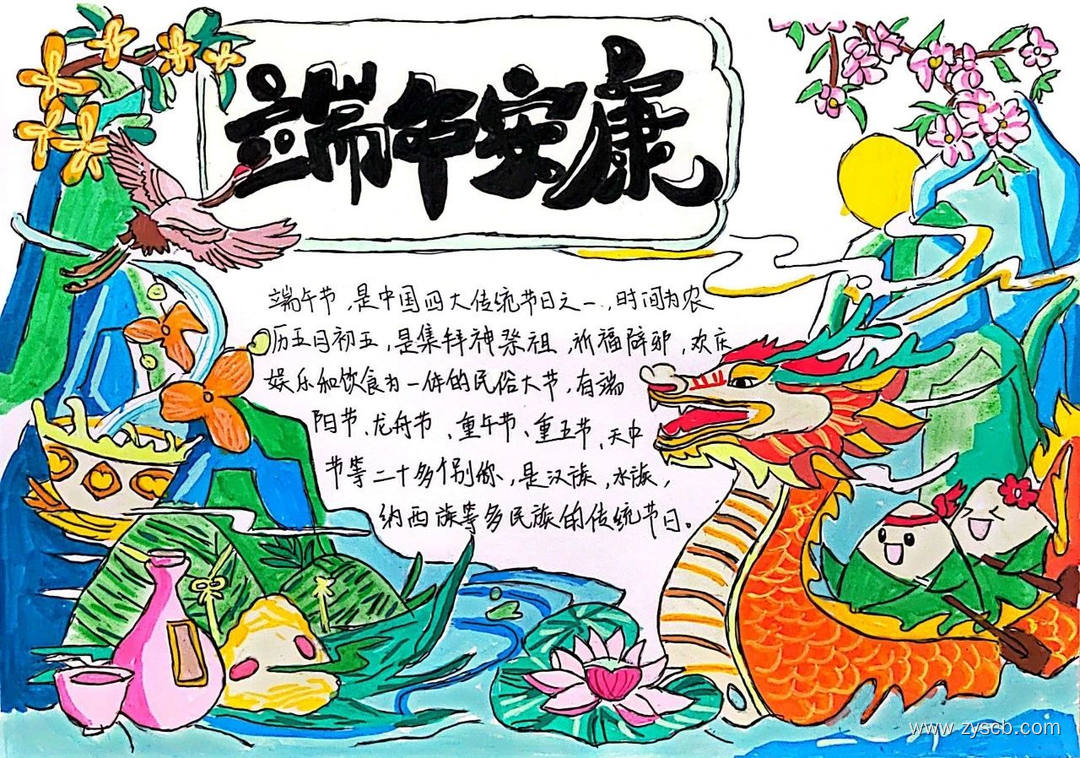 端午安康
端午节，是中国四大传统节日之一，时间为农
历五日初五，是集拜神祭祖，祈福辟邪，欢庆
娱乐和饮食为一体的民俗大节，有端
阳节、龙舟节、重午节、重五节、天中
节等二十多个别你，是汉族，水族，
纳西族等多民族的传统节日。
www.zyscb.com